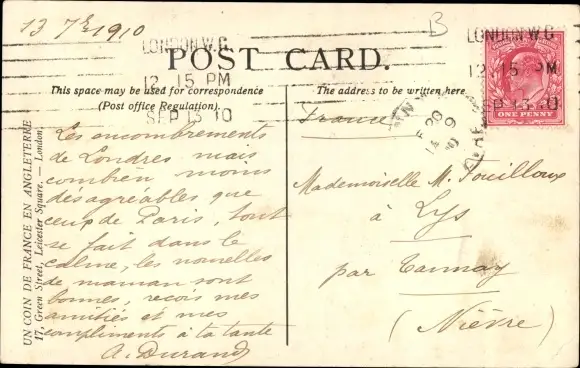 13 7bre 1910
B
LONDON. W.C.
12.15 PM
SEP 13 10
LONDON W.C
12.15 PM
SEP 13 10
POST CARD.
ONE PENNY
This space may be used for correspondence
(Post office Regulation).
The address to be written here
UN COIN DE FRANCE EN ANGLETERRE
17, Green Street, Leicester Square. — London.
Les encombrements
de Londres mais
combien moins
désagréables que
ceux de Paris, tout
se fait dans le
calme, les nouvelles
de maman sont
bonnes, reçois mes
amitiés et mes
compliments à ta tante
A. Durand
France
Mademoiselle M. Touilloux
à
Lys
par Tannay
(Nièvre)